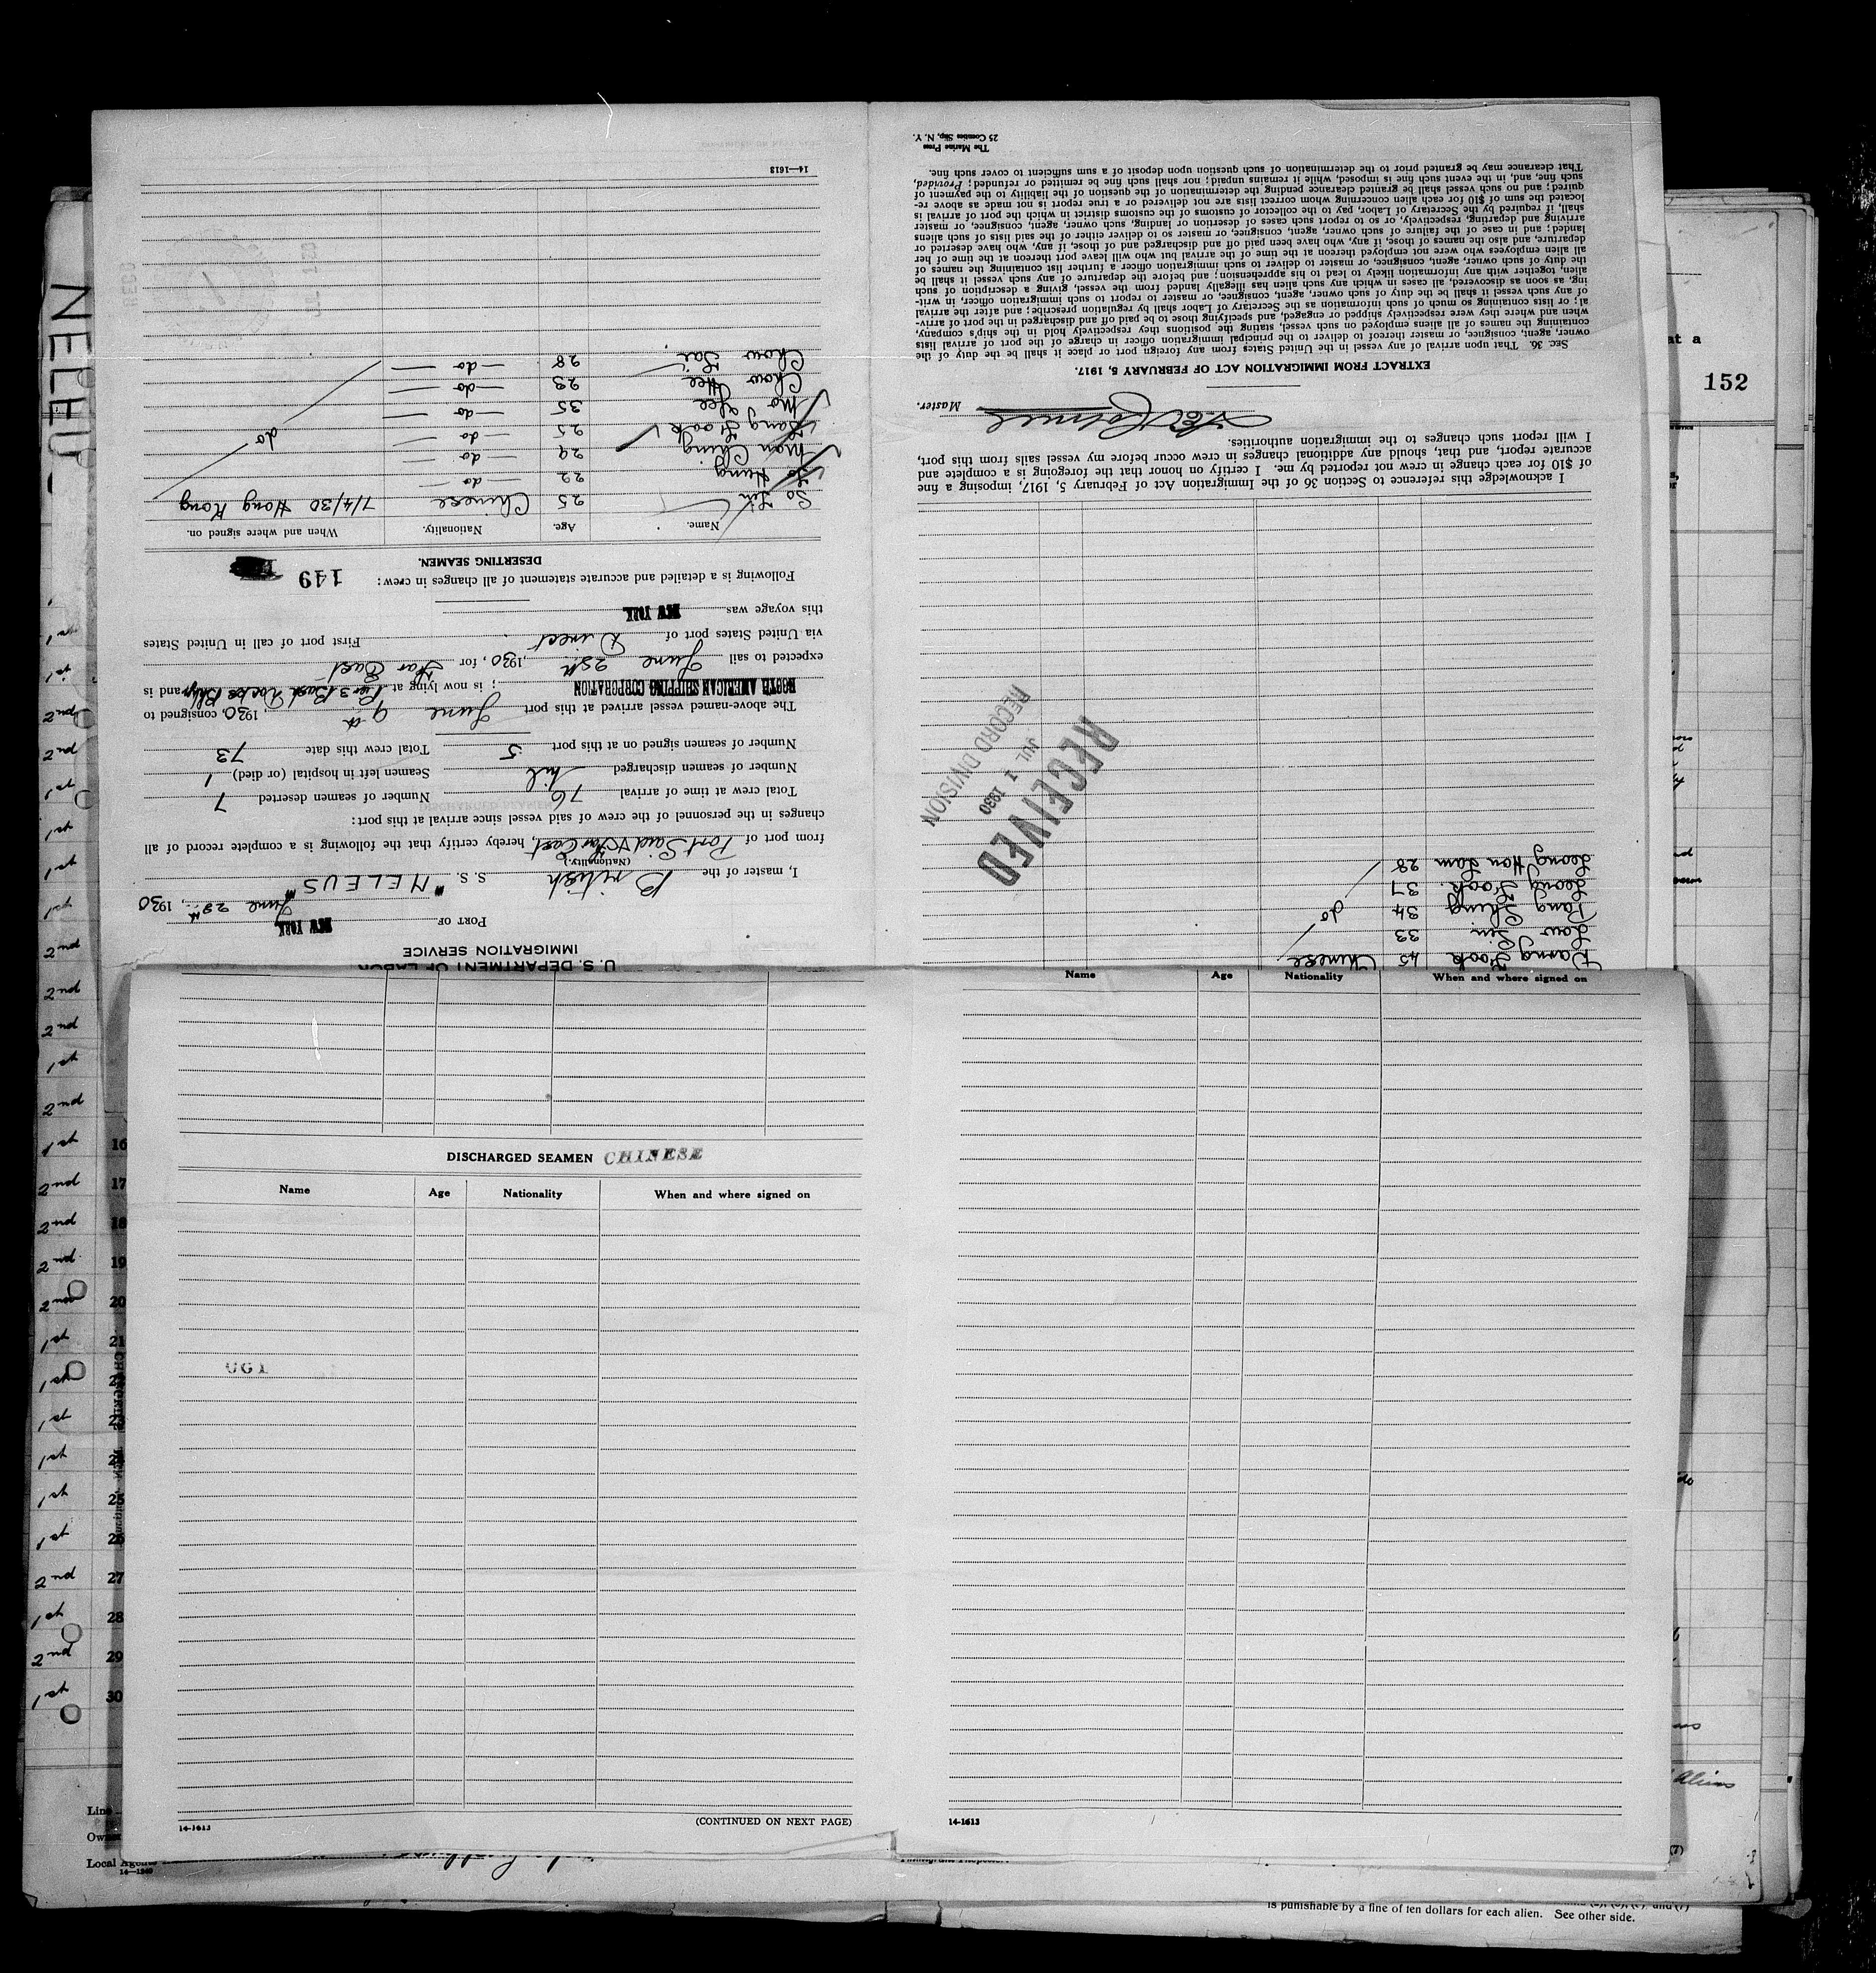 U. S. DEPARTMENT OF LABOR
IMMIGRATION SERVICE
PORT OF NEW YORK
June 28th, 1930
I, master of the British S. S. "NELEUS"
(Nationality.)
from port of Port Said & Far East, hereby certify that the following is a complete record of all
changes in the personnel of the crew of said vessel since arrival at this port:
Total crew at time of arrival 76 Number of seamen deserted 7
Number of seamen discharged Nil Seamen left in hospital (or died) 1
Number of seamen signed on at this port 5 Total crew this date 73
The above-named vessel arrived at this port June 9th, 1930, consigned to
NORTH AMERICAN SHIPPING CORPORATION; is now lying at Pier 3 Bush Docks Bklyn and is
expected to sail June 28th, 1930, for Far East
via United States port of Direct First port of call in United States
this voyage was NEW YORK
Following is a detailed and accurate statement of all changes in crew: 149
DESERTING SEAMEN.
Name. Age. Nationality. When and where signed on.
So 25 Chinese 7/4/30 Hong Kong
Hung 22 — do —
Man Ching 29 — do —
Fook 25 — do — do
Mo 35 — do —
Chow Hee 23 — do —
Chow 28 — do —
14—1613
Fook 45 Chinese
Low Sin 33
Pang Shing 34 do
Leong Fook 37
Leong Hon Lam 28
RECEIVED
JUL 1 1930
RECORD DIVISION
I acknowledge this reference to Section 36 of the Immigration Act of February 5, 1917, imposing a fine
of $10 for each change in crew not reported by me. I certify on honor that the foregoing is a complete and
accurate report, and that, should any additional changes in crew occur before my vessel sails from this port,
I will report such changes to the immigration authorities.
Master.
EXTRACT FROM IMMIGRATION ACT OF FEBRUARY 5, 1917.
SEC. 36. That upon arrival of any vessel in the United States from any foreign port or place it shall be the duty of the
owner, agent, consignee, or master thereof to deliver to the principal immigration officer in charge of the port of arrival lists
containing the names of all aliens employed on such vessel, stating the positions they respectively hold in the ship's company,
when and where they were respectively shipped or engaged, and specifying those to be paid off and discharged in the port of arriv-
al; or lists containing so much of such information as the Secretary of Labor shall by regulation prescribe; and after the arrival
of any such vessel it shall be the duty of such owner, agent, consignee, or master to report to such immigration officer, in writ-
ing, as soon as discovered, all cases in which any such alien has illegally landed from the vessel, giving a description of such
alien, together with any information likely to lead to his apprehension; and before the departure of any such vessel it shall be
the duty of such owner, agent, consignee, or master to deliver to such immigration officer a further list containing the names of
all alien employees who were not employed thereon at the time of the arrival but who will leave port thereon at the time of her
departure, and also the names of those, if any, who have been paid off and discharged and of those, if any, who have deserted or
landed; and in case of the failure of such owner, agent, consignee, or master so to deliver either of the said lists of such aliens
arriving and departing, respectively, or so to report such cases of desertion or landing, such owner, agent, consignee, or master
shall, if required by the Secretary of Labor, pay to the collector of customs of the customs district in which the port of arrival is
located the sum of $10 for each alien concerning whom correct lists are not delivered or a true report is not made as above re-
quired; and no such vessel shall be granted clearance pending the determination of the question of the liability to the payment of
such fine, and, in the event such fine is imposed, while it remains unpaid; nor shall such fine be remitted or refunded; Provided,
That clearance may be granted prior to the determination of such question upon deposit of a sum sufficient to cover such fine.
The Marine Press
25 Coenties Slip, N. Y.
DISCHARGED SEAMEN CHINESE
Name Age Nationality When and where signed on
UGI
14-1613
(CONTINUED ON NEXT PAGE)
Name Age Nationality When and where signed on
14-1613
NELEU
at a
152
1st
1st
2nd
2nd
1st
1st
1st
1st
2nd
2nd
2nd
1st
2nd
1st 16
2nd 17
2nd 18
2nd 19
2nd 20
1st 21
1st 22
1st 23
1st 24
1st 25
1st 26
2nd 27
1st 28
2nd 29
1st 30
do
Aliens
Line
Owner
Local Agents
14—1240
is punishable by a fine of ten dollars for each alien. See other side.